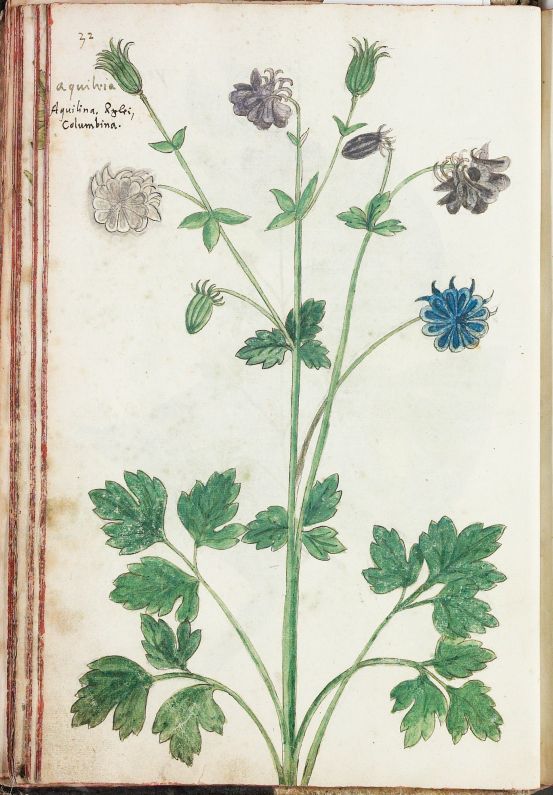 32
aquileia
Aquilina,
Columbina.